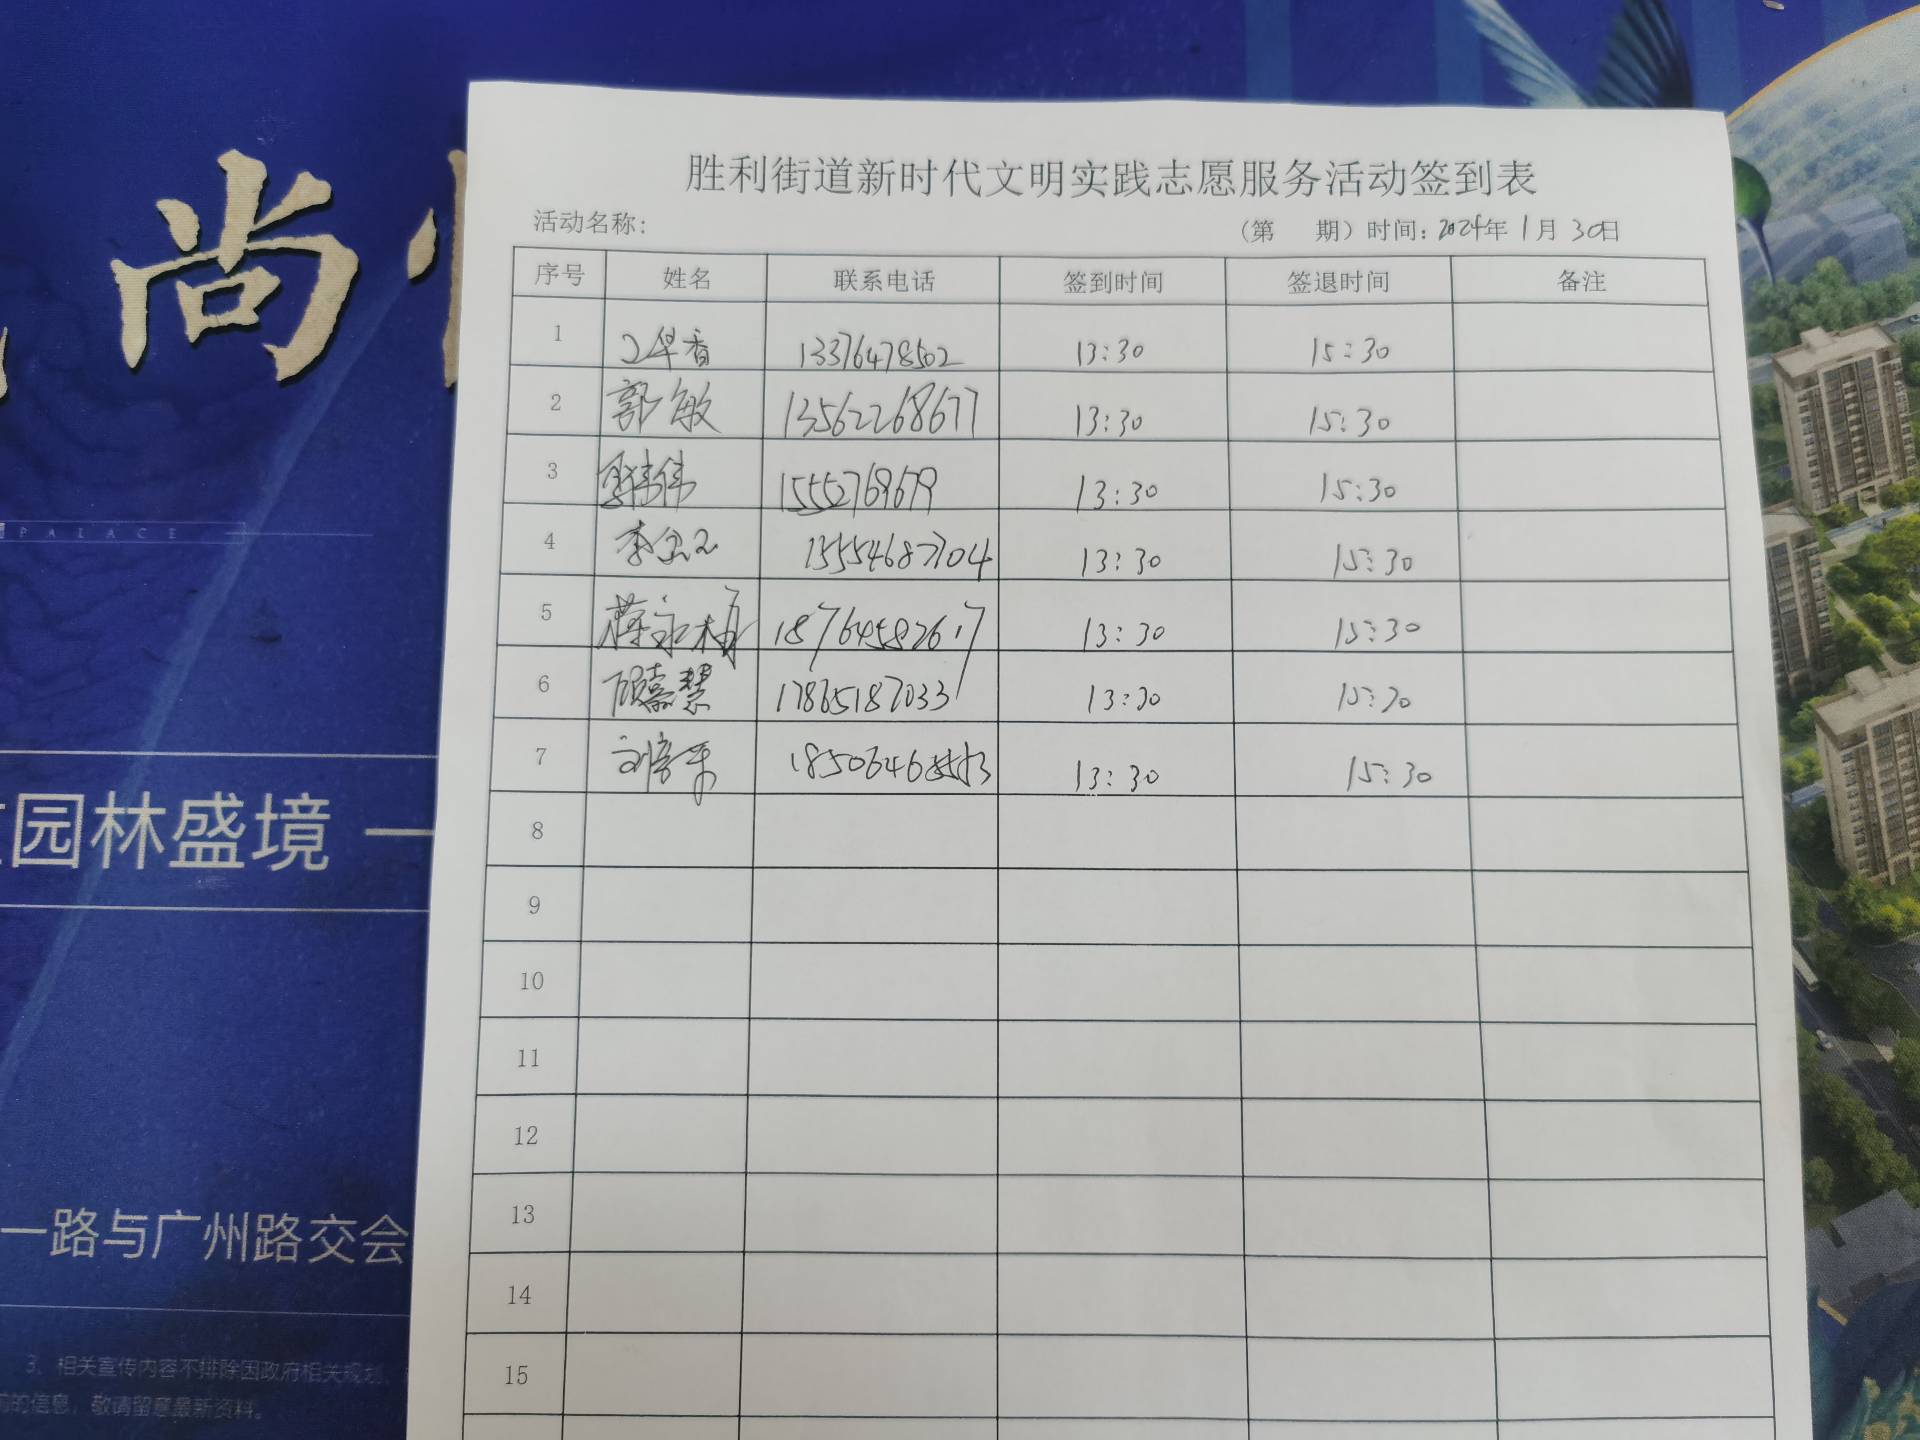 胜利街道新时代文明实践志愿服务活动签到表
活动名称：
（第 期）时间：2024年1月30日
序号 姓名 联系电话 签到时间 签退时间 备注
1 华香 13376478502 13:30 15:30
2 郭敏 13562268677 13:30 15:30
3 伟伟 15552769679 13:30 15:30
4 李 15554687704 13:30 15:30
5 蒋永梅 18764582617 13:30 15:30
6 顾嘉慧 17865187033 13:30 15:30
7 刘 13:30 15:30
8
9
10
11
12
13
14
15
尚
PALACE
园林盛境
一路与广州路交会
3、相关宣传内容不排除因政府相关规划、
的信息，敬请留意最新资料。